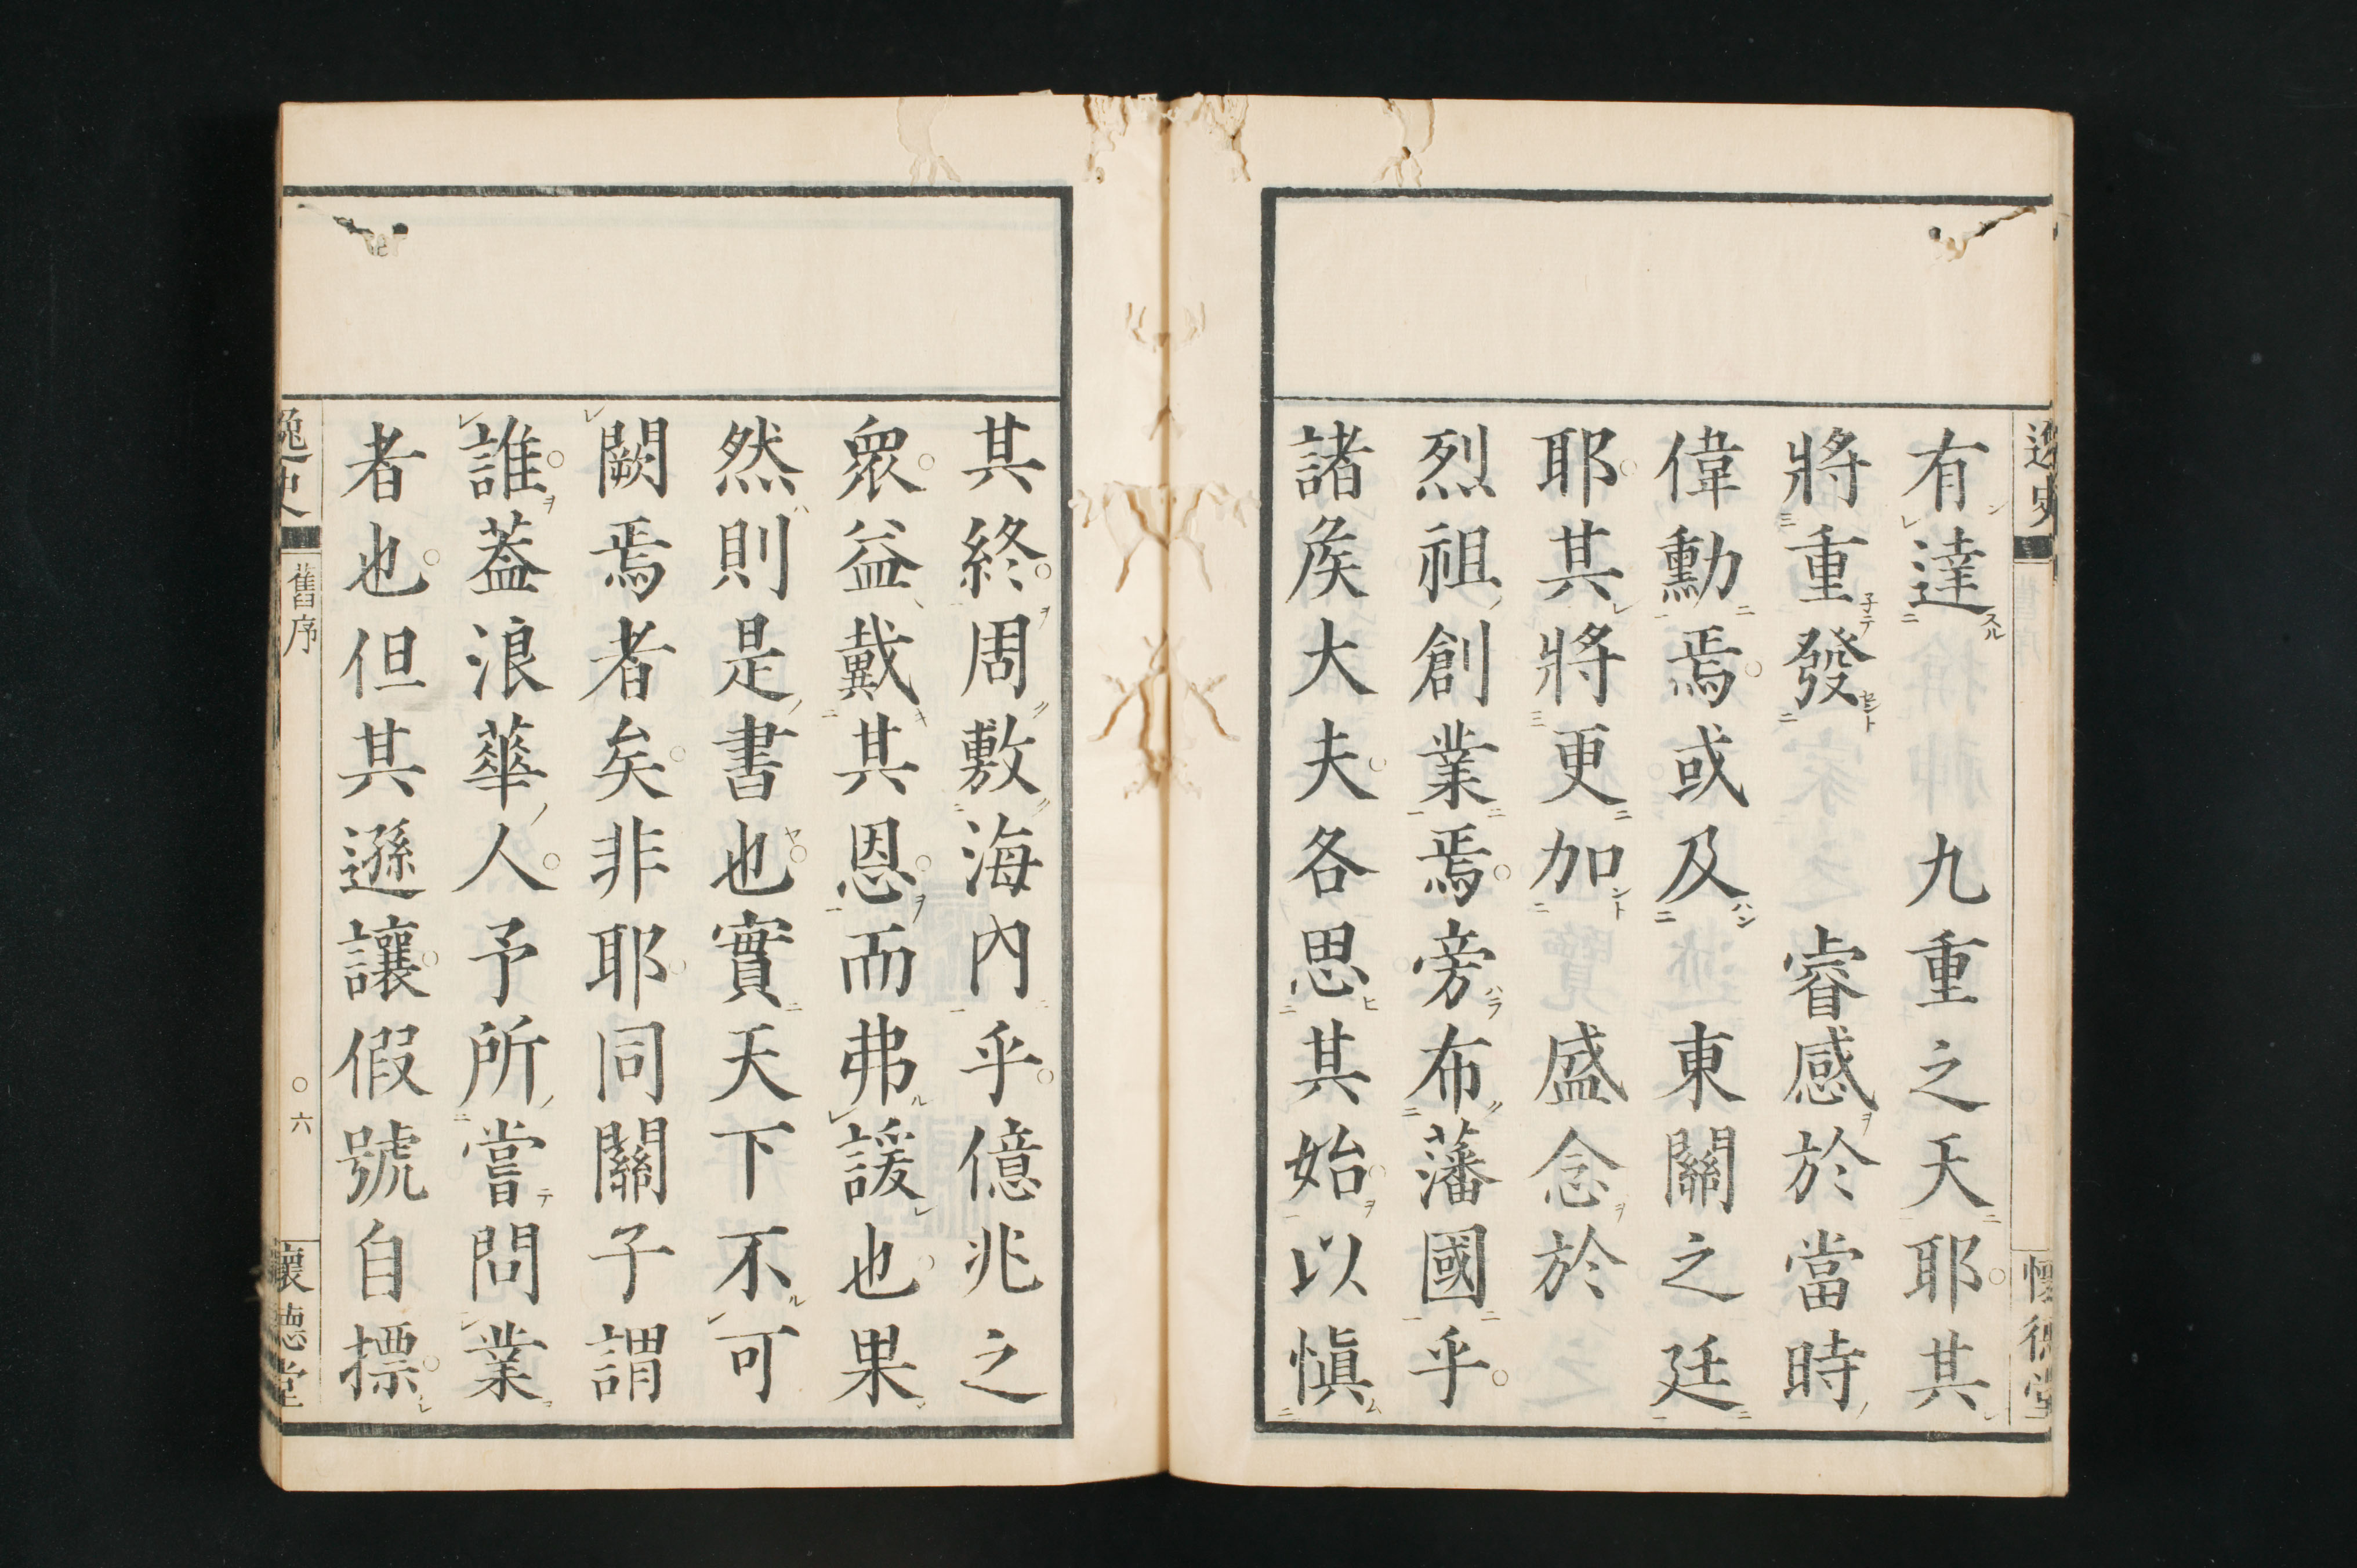 逸史
懷德堂
有達　九重之天耶其
將重發　睿感於當時
偉勳焉或及　東關之廷
耶其將更加　盛念於
烈祖創業焉旁布藩國乎
諸矦大夫各思其始以愼
其終周敷海內乎億兆之
衆益戴其恩而弗諼也果
然則是書也實天下不可
闕焉者矣非耶同關子謂
誰蓋浪華人予所嘗問業
者也但其遜讓假號自摽
逸史
舊序
〇六
懷德堂